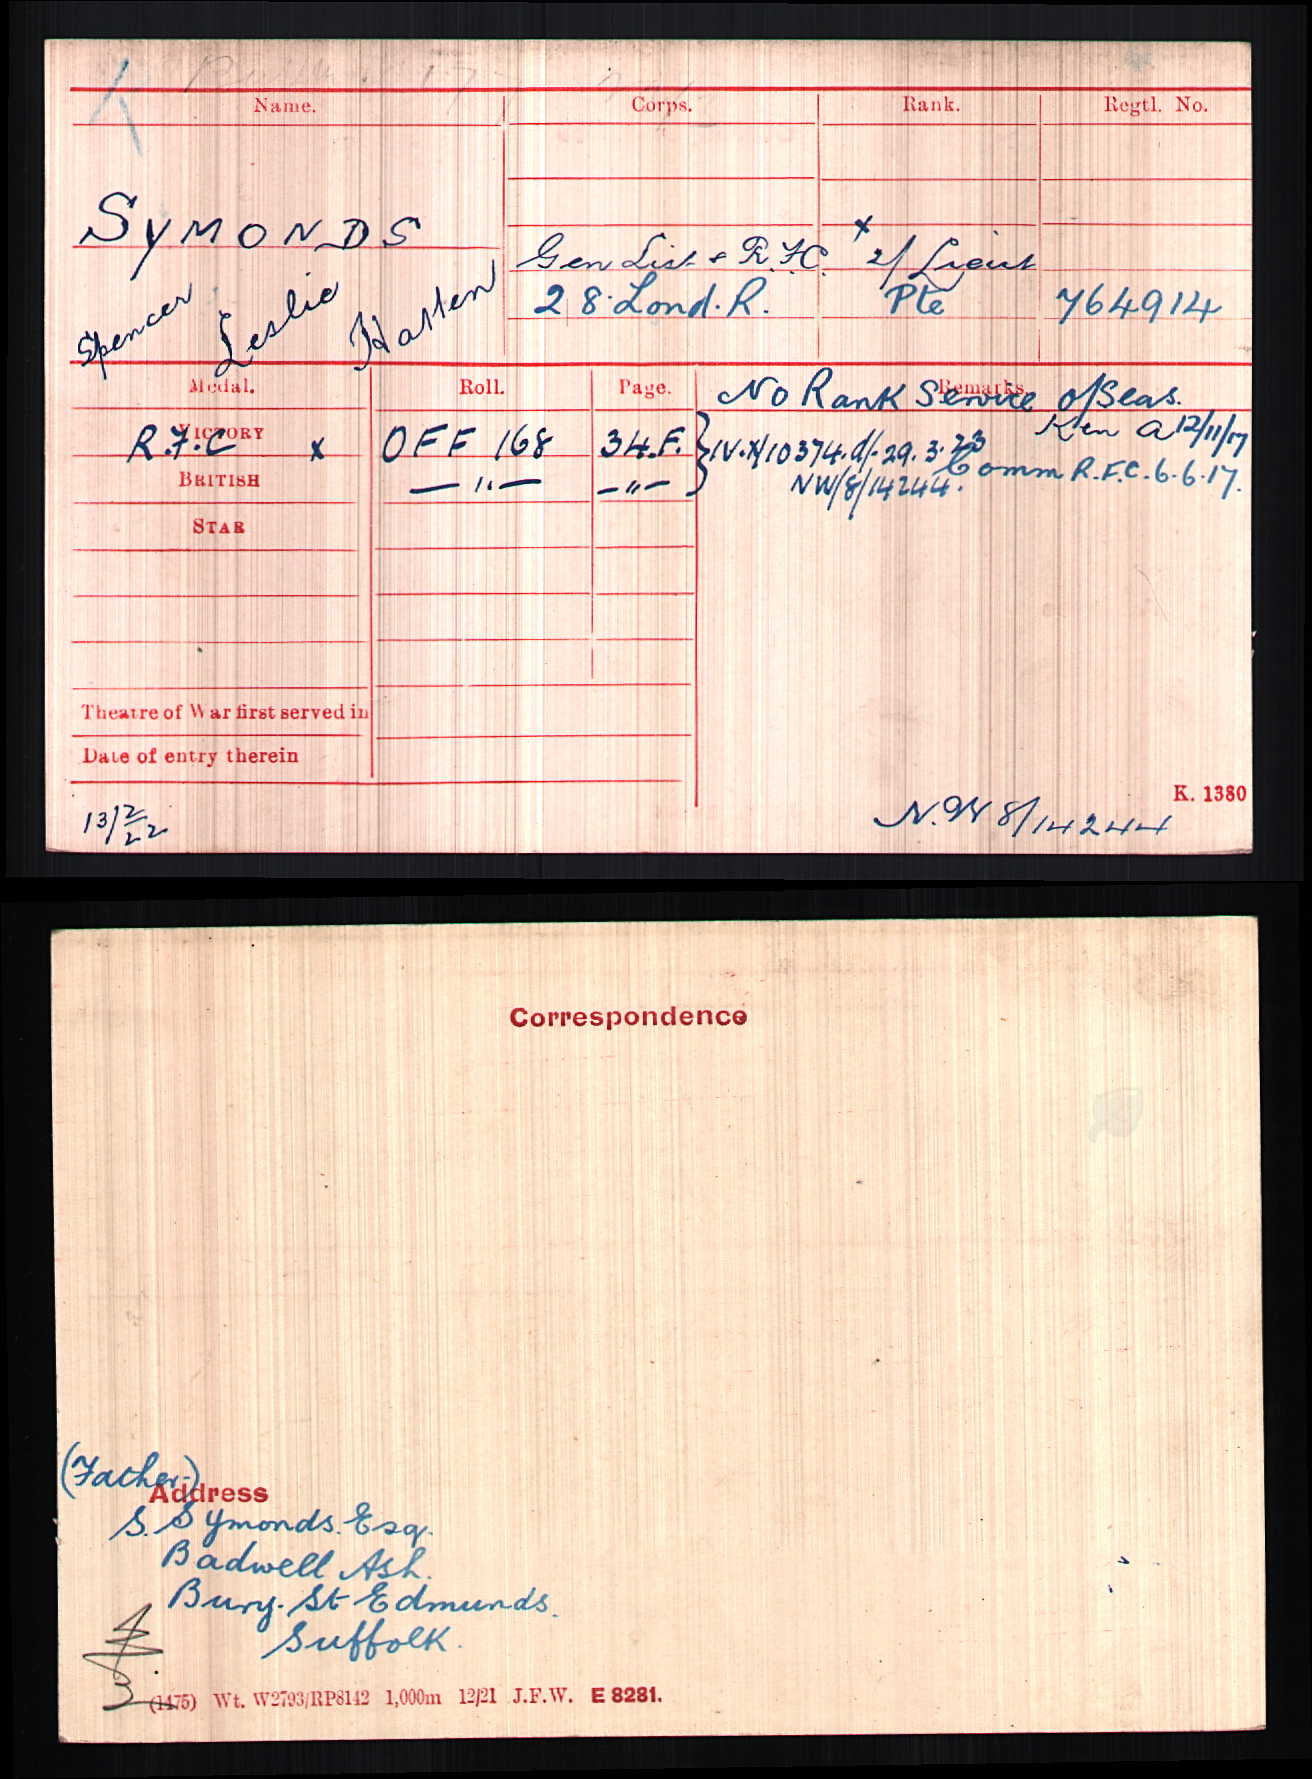 Name. Corps. Rank. Regtl. No.
SYMONDS
Gen List & R.F.C. x 2/Lieut
28. Lond. R. Pte 764914
Spencer Leslie Hatten
Medal. Roll. Page. Remarks.
No Rank Service o/Seas.
VICTORY R.F.C x OFF 168 34.F. } IV.X/10374.d/-29.3.23 K in a 12/11/17
BRITISH — " — — " — NW/8/14244. Comm R.F.C. 6.6.17.
STAR
Theatre of War first served in
Date of entry therein
K. 1380
13/2/22 N.W 8/14244
Correspondence
(Father.-)
Address
S. Symonds. Esq.
Badwell Ash.
Bury. St Edmunds.
Suffolk.
(1475) Wt. W2793/RP8142 1,000m 12/21 J.F.W. E 8281.